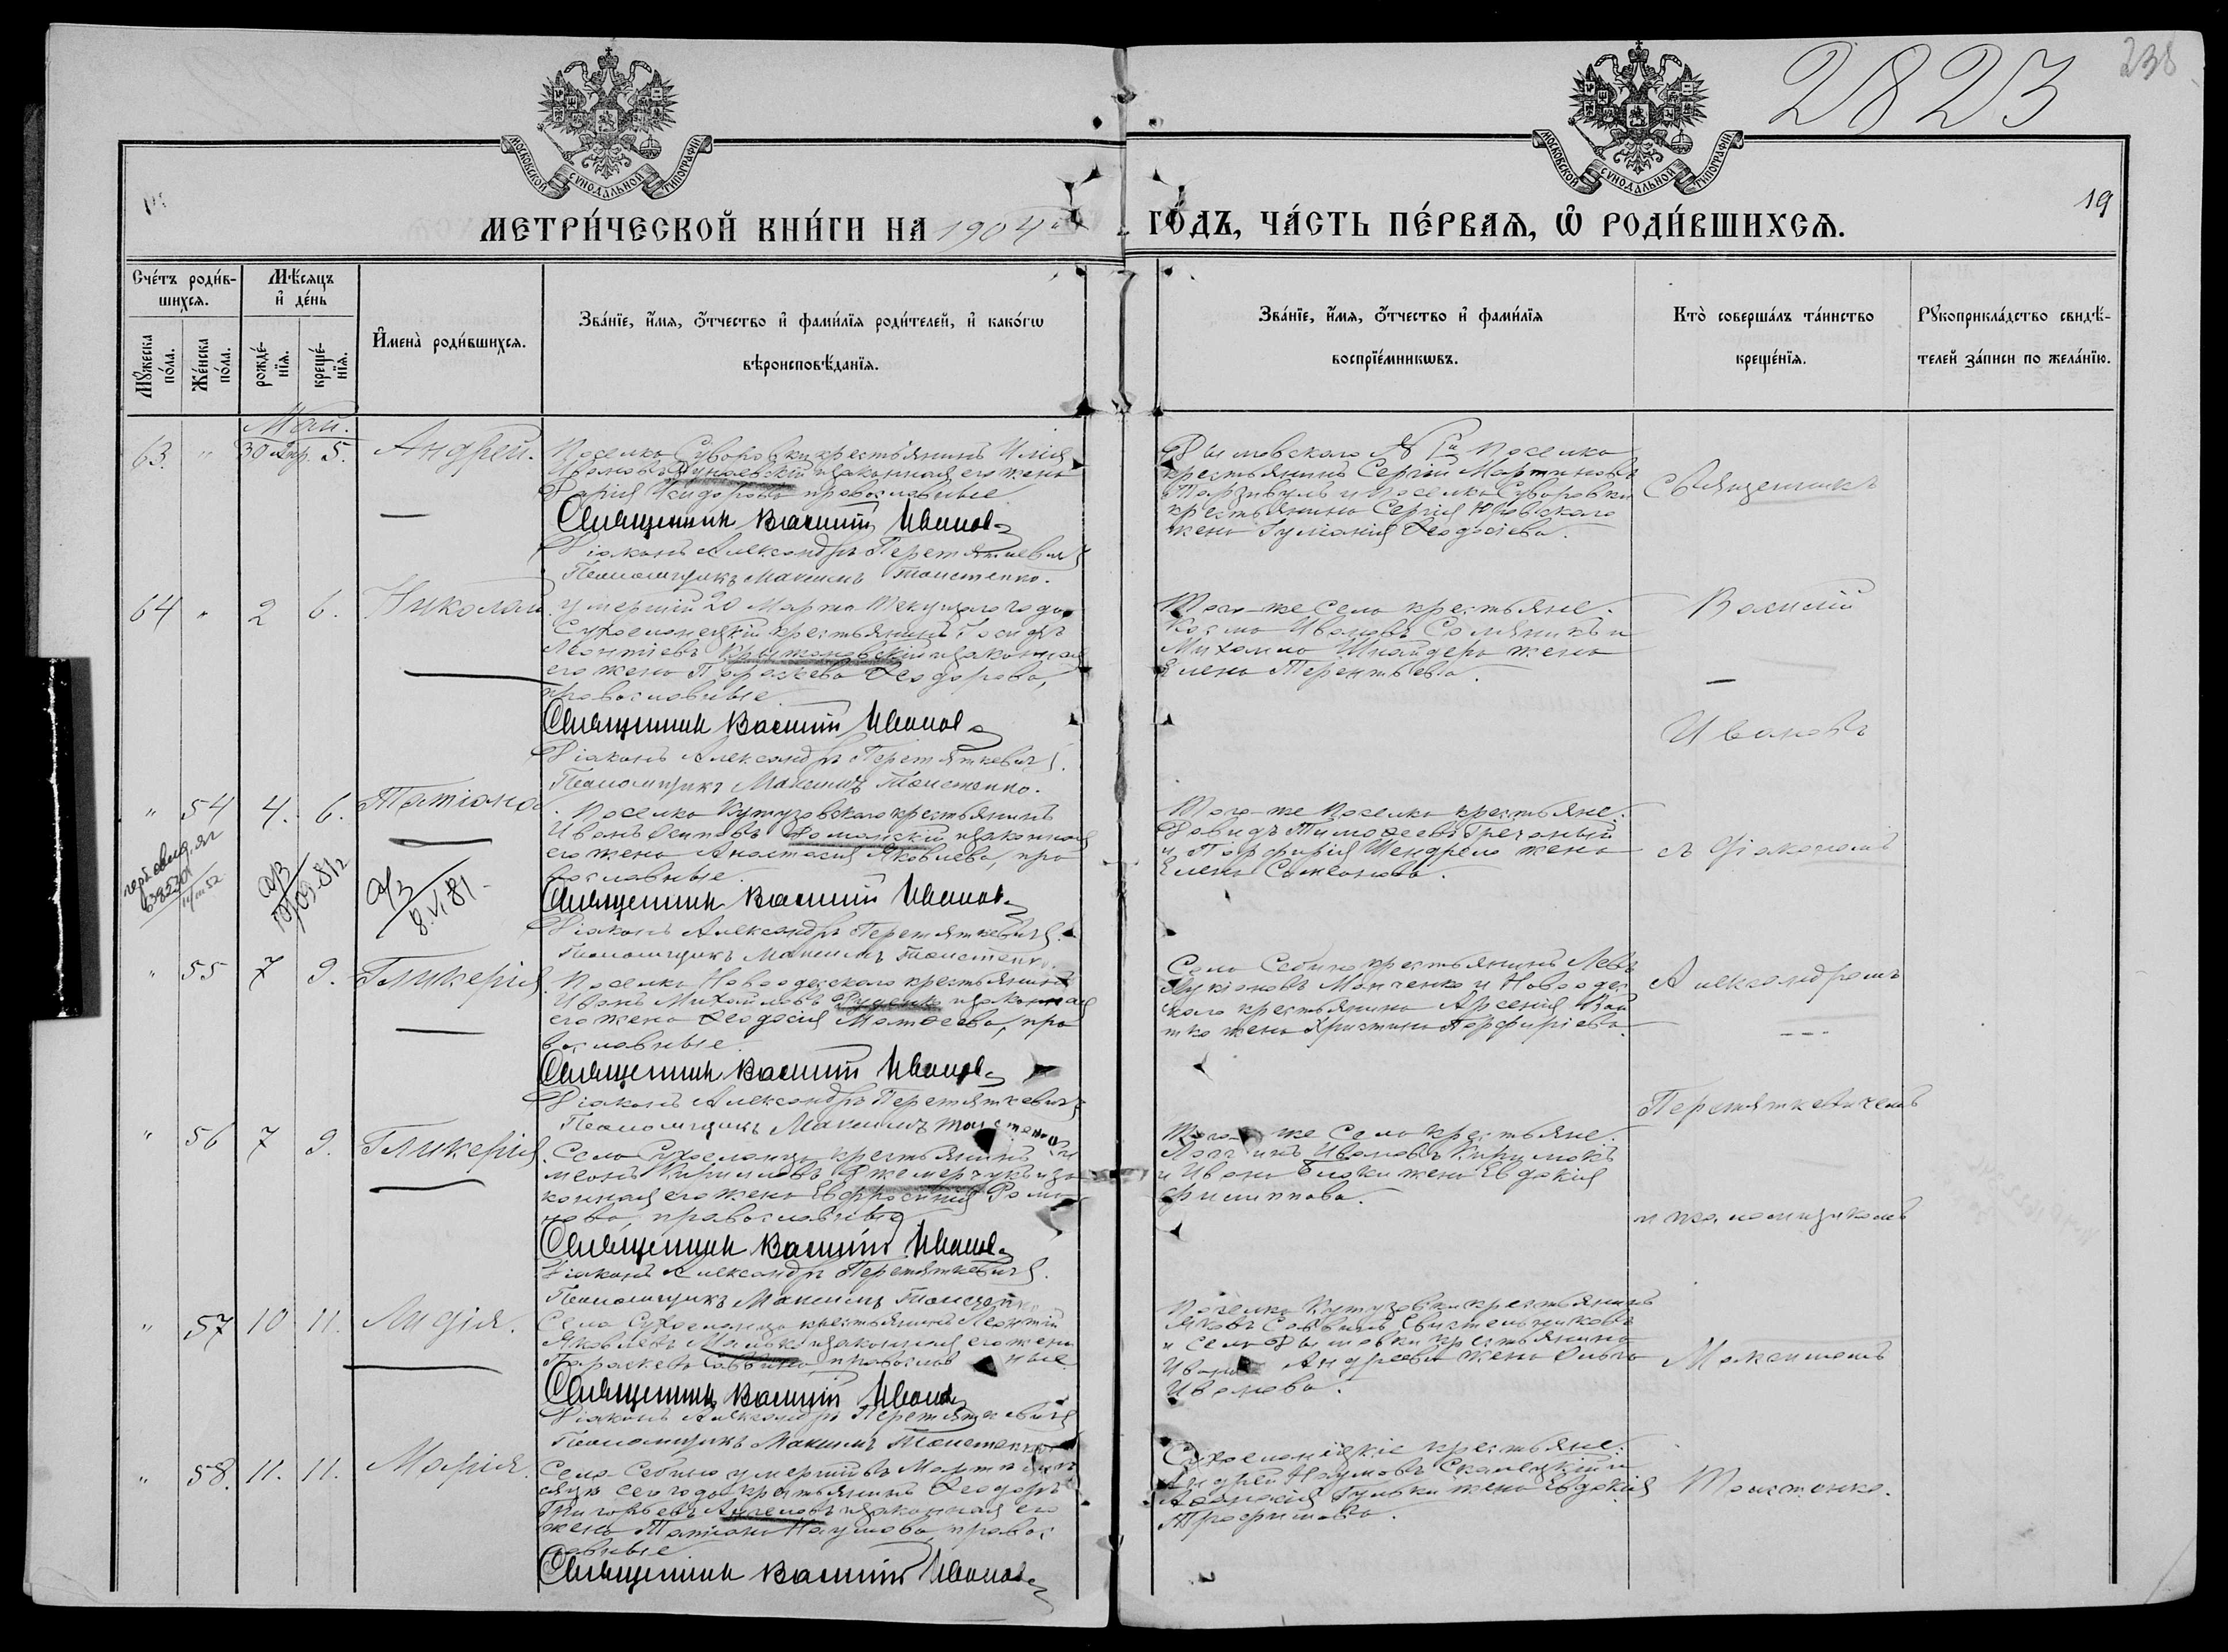 2823
238
МОСКОВСКОЙ СѴНОДАЛЬНОЙ ТИПОГРАФІИ
МОСКОВСКОЙ СѴНОДАЛЬНОЙ ТИПОГРАФІИ
19
МЕТРИ́ЧЕСКОЙ КНИ́ГИ НА 1904 ГО́ДЪ, ЧА́СТЬ ПЕ́РВАѦ, Ѡ҆ РОДИ́ВШИХСѦ.
Сче́тъ роди́вшихсѧ.
Мꙋ́жеска по́ла.
Же́нска по́ла.
Мѣ́сѧцъ и҆ де́нь
рожде́нїѧ.
креще́нїѧ.
И҆мена̀ роди́вшихсѧ.
Зва́нїе, и҆́мѧ, ѻ҆́тчество и҆ фами́лїѧ роди́телей, и҆ како́гѡ
вѣроисповѣ́данїѧ.
Зва́нїе, и҆́мѧ, ѻ҆́тчество и҆ фами́лїѧ
воспрїе́мникѡвъ.
Кто̀ соверша́лъ та́инство
креще́нїѧ.
Рꙋкоприкла́дство свидѣ́-
телей за́писи по жела́нїю.
Май.
63. " 30 Апр. 5. Андрей.
Поселка Суворовки крестьянинъ Илія
Ивановъ Дунаевскій и законная его жена
Дарія Исидорова, православные
Священникъ Василій Ивановъ
Діаконъ Александръ Перетяткевичъ
Псаломщикъ Максимъ Толстенко.
крестьянинъ Сергій Мартиновъ
и поселка Суворовки
крестьянина Сергія
жена Іуліанія Ѳеодосіева.
Священникъ
64 " 2 6. Николай
умершій 20 Марта текущаго года
Сухоеланецкій крестьянинъ Іосифъ
Леонтіевъ Крыжановскій и законная
его жена Параскева Ѳеодорова,
православные
Священникъ Василій Ивановъ
Діаконъ Александръ Перетяткевичъ.
Псаломщикъ Максимъ Толстенко.
Того-же села крестьяне:
Косма Ивановъ и
Михаила Шнайдера жена
Елена Терентьева.
Василій
Ивановъ
" 54 4. 6. Татіана
Поселка Кутузовскаго крестьянинъ
Иванъ Осиповъ и законная
его жена Анастасія Яковлева, пра
вославные.
Священникъ Василій Ивановъ
Діаконъ Александръ Перетяткевичъ.
Псаломщикъ Максимъ Толстенко.
Того-же поселка крестьяне:
Давидъ Тимоѳеевъ Гречаный
и Порфирія Шендрела жена
Елена Симеонова.
съ діакономъ
8.VI.81
" 55 7 9. Гликерія.
Поселка Новоодесскаго крестьянинъ
Иванъ Михайловъ Руденко и законная
его жена Ѳеодосія Матѳеева, пра
вославные
Священникъ Василій Ивановъ
Діаконъ Александръ Перетяткевичъ
Псаломщикъ Максимъ Толстенко
Села Себина крестьянинъ Левъ
Лукіановъ Манченко и Новоодес
скаго крестьянина Арсенія
жена Христина Порфиріева
Александромъ
Перетяткевичемъ
" 56 7 9. Гликерія.
Села Сухоеланца крестьянинъ Си
меонъ Кирилловъ и за
конная его жена Евфросинія Рома
нова, православные
Священникъ Василій Ивановъ
Діаконъ Александръ Перетяткевичъ.
Псаломщикъ Максимъ Толстенко
Того-же села крестьяне:
Ивановъ
и Ивана жена Евдокія
Филиппова.
и псаломщикомъ
" 57 10 11. Лидія.
Села Сухоеланца крестьянинъ Леонтій
Яковлевъ и законная его жена
Параскева Саввина, православные
Священникъ Василій Ивановъ
Діаконъ Александръ Перетяткевичъ
Псаломщикъ Максимъ Толстенко
Поселка Кутузовки крестьянинъ
Яковъ Саввинъ
и села крестьянина
Ивана Андреева жена Ольга
Иванова.
Максимомъ
" 58. 11. 11. Марія.
Села Себина умершій въ Мартѣ мѣ
сяцѣ сего года крестьянинъ Ѳеодоръ
Григорьевъ и законная его
жена Татіана Наумова, правос
лавные
Священникъ Василій Ивановъ
Сухоеланецкіе крестьяне:
Андрей Наумовъ и
Аѳанасія жена Евдокія
Трофимова.
Толстенко.